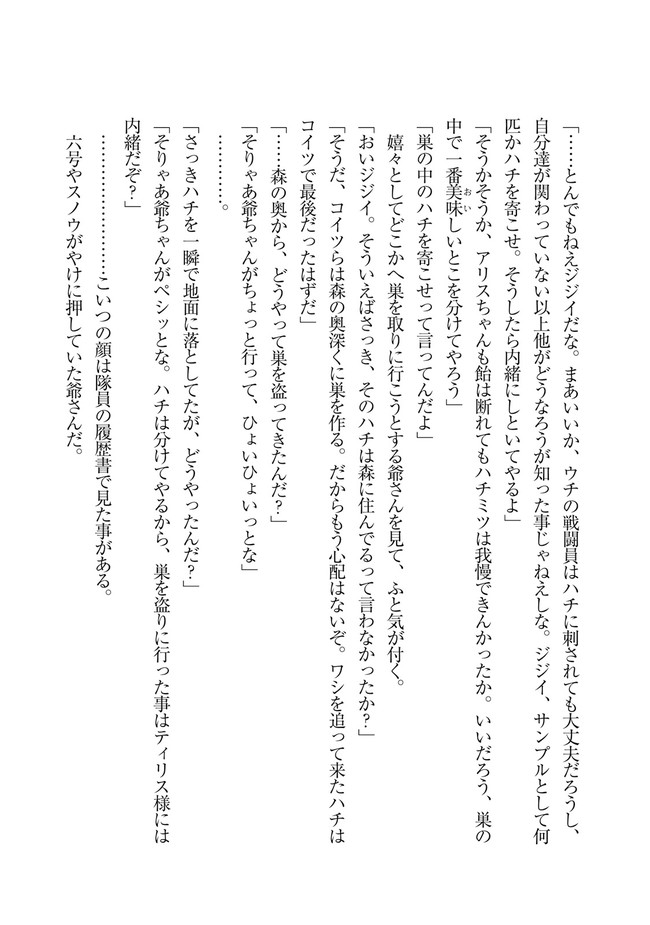 「……とんでもねえジジイだな。まあいいか、ウチの戦闘員はハチに刺されても大丈夫だろうし、
自分達が関わっていない以上他がどうなろうが知った事じゃねえしな。ジジイ、サンプルとして何
匹かハチを寄こせ。そうしたら内緒にしといてやるよ」
「そうかそうか、アリスちゃんも飴は断れてもハチミツは我慢できんかったか。いいだろう、巣の
中で一番美味しいとこを分けてやろう」
「巣の中のハチを寄こせって言ってんだよ」
嬉々としてどこかへ巣を取りに行こうとする爺さんを見て、ふと気が付く。
「おいジジイ。そういえばさっき、そのハチは森に住んでるって言わなかったか？」
「そうだ、コイツらは森の奥深くに巣を作る。だからもう心配はないぞ。ワシを追って来たハチは
コイツで最後だったはずだ」
「……森の奥から、どうやって巣を盗ってきたんだ？」
「そりゃあ爺ちゃんがちょっと行って、ひょいひょいっとな」
…………。
「さっきハチを一瞬で地面に落としてたが、どうやったんだ？」
「そりゃあ爺ちゃんがペシッとな。ハチは分けてやるから、巣を盗りに行った事はティリス様には
内緒だぞ？」
……………………こいつの顔は隊員の履歴書で見た事がある。
六号やスノウがやけに押していた爺さんだ。